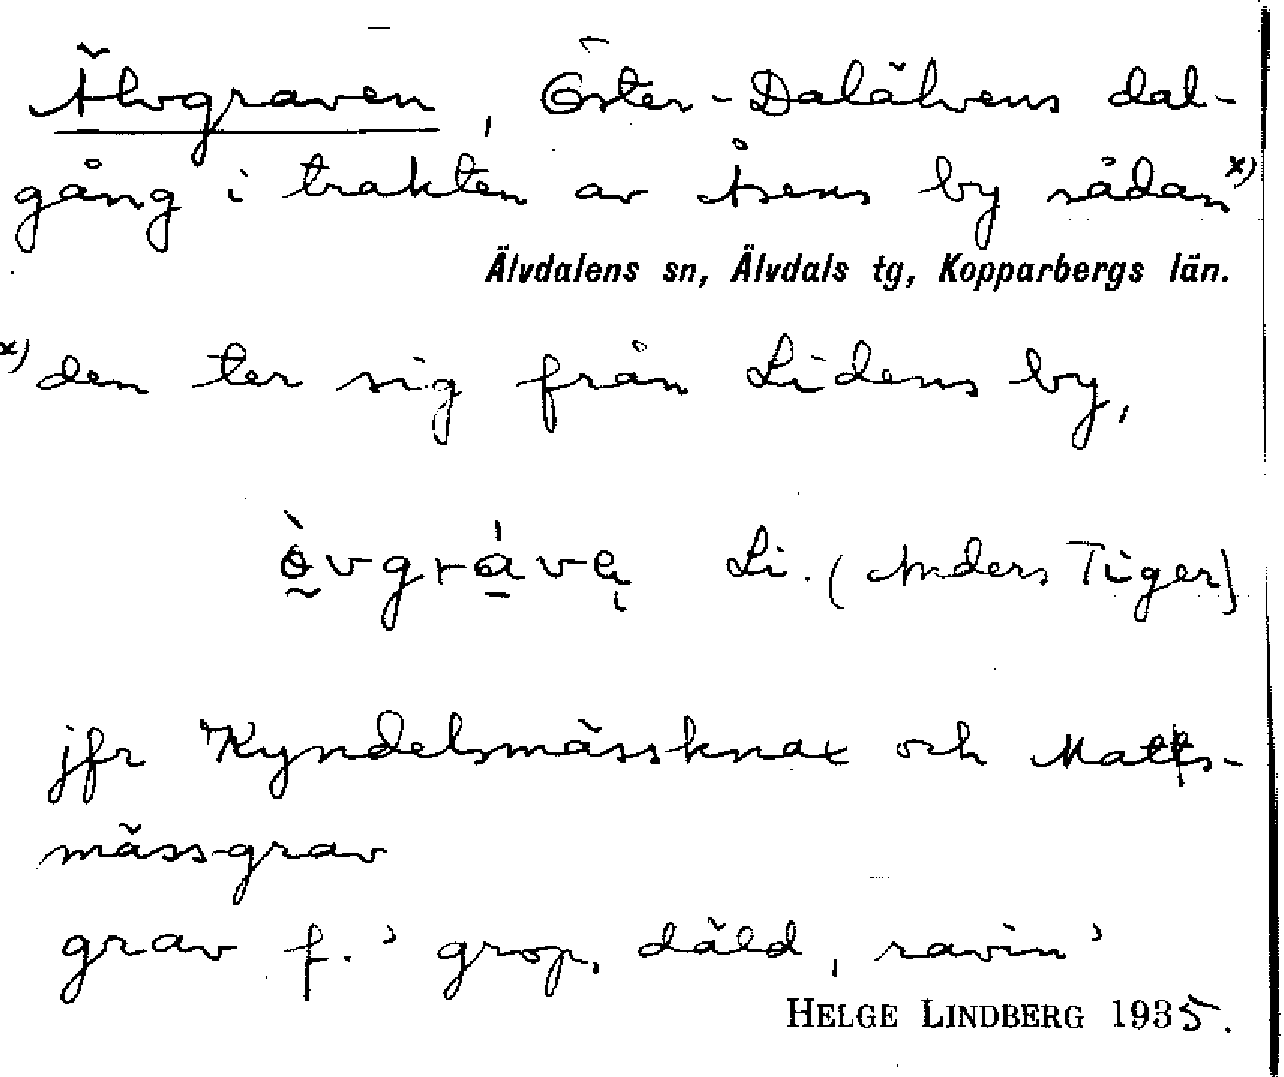 Älvgraven, Öster-Dalälvens dal-
gång i trakten av Åsens by sådan x)
Älvdalens sn, Älvdals tg, Kopparbergs län.
x) den ter sig från Lidens by,
òvgrávę Li. (Anders Tiger)
jfr Kyndelsmässknax och Matts-
mässgrav
grav f. ’grop, däld, ravin’
HELGE LINDBERG 1935.